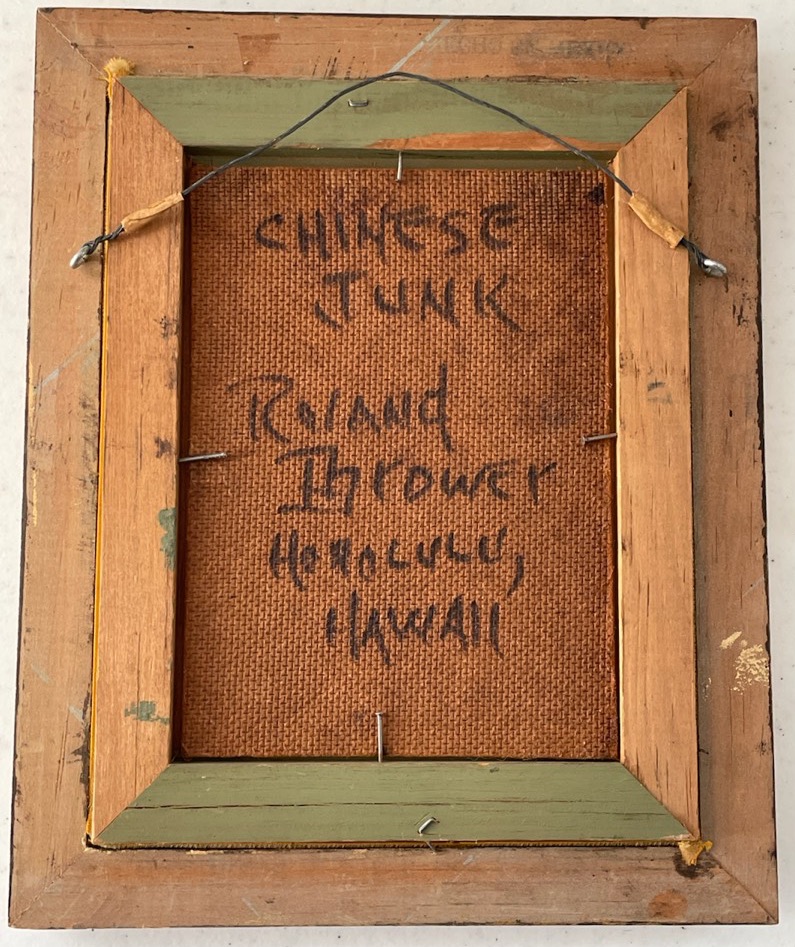 CHINESE
JUNK
ROLAND
Thrower
HONOLULU,
HAWAII